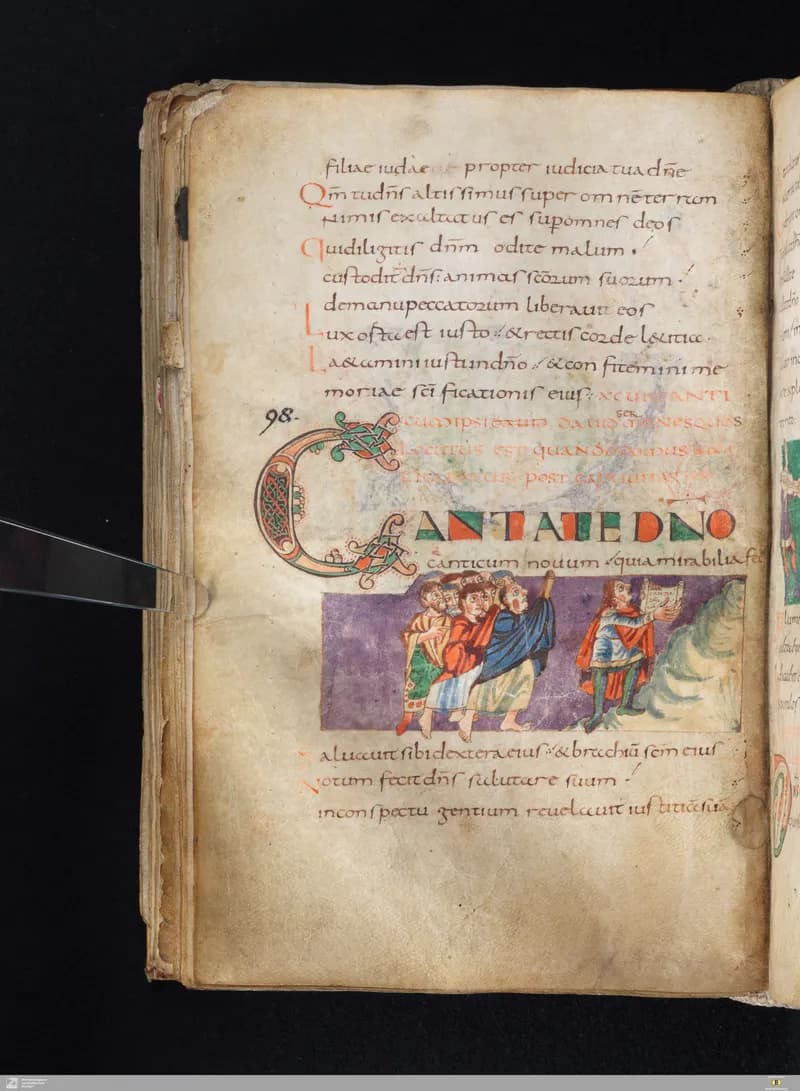 filiae iudae propter iudicia tua dñe
Qm̃ tu dñs altissimus super omnẽ terram
nimis exaltatus es sup omnes deos
Qui diligitis dñm odite malum
custodit dñs animas scõrum suorum
de manu peccatorum liberauit eos
Lux orta est iusto & rectis corde l&itia
La&amini iusti in dño & confitemini me
moriae scĩ ficationis eius
98.
CANTATE DNO
canticum nouum quia mirabilia fec
Saluauit sibi dextera eius & brachiũ scm̃ eius
Notum fecit dñs salutare suum
in conspectu gentium reuelauit iustitiã suã